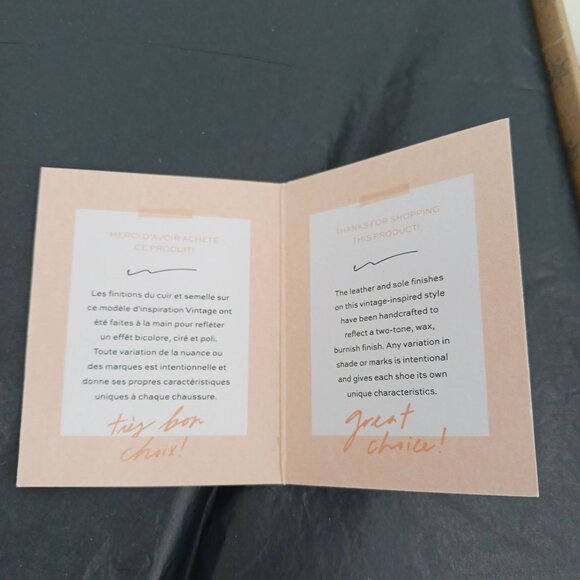 MERCI D'AVOIR ACHETÉ
CE PRODUIT!
Les finitions du cuir et semelle sur
ce modèle d'inspiration Vintage ont
été faites à la main pour refléter
un effêt bicolore, ciré et poli.
Toute variation de la nuance ou
des marques est intentionnelle et
donne ses propres caractéristiques
uniques à chaque chaussure.
très bon
choix!
THANKS FOR SHOPPING
THIS PRODUCT!
The leather and sole finishes
on this vintage-inspired style
have been handcrafted to
reflect a two-tone, wax,
burnish finish. Any variation in
shade or marks is intentional
and gives each shoe its own
unique characteristics.
great
choice!